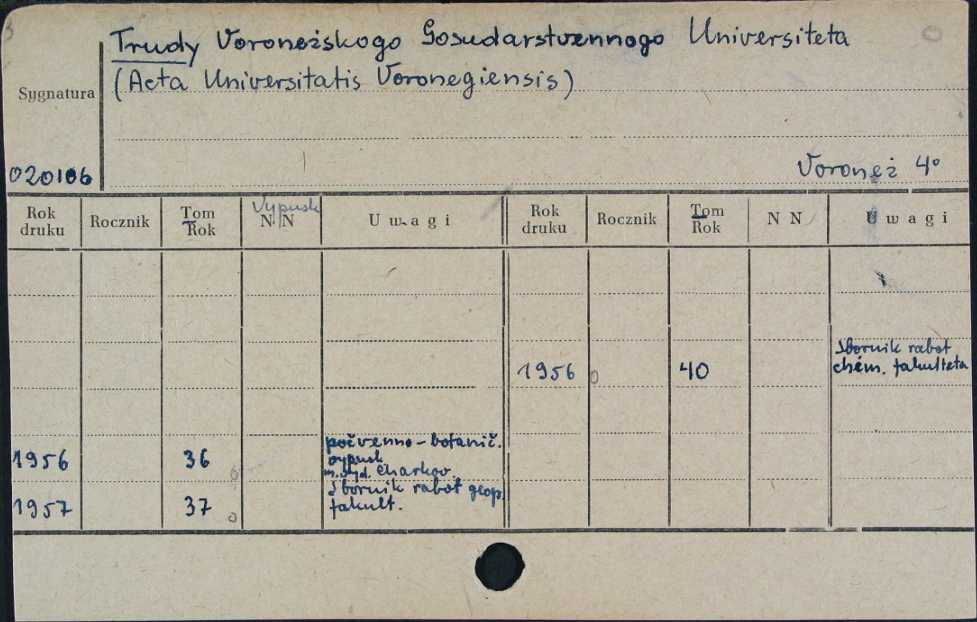 Trudy Voronežskogo Gosudarstvennogo Universiteta
(Acta Universitatis Voronegiensis)
Sygnatura
020106
Voronež 4°
Rok druku
Rocznik
Tom
Rok
Vypusk
N N
Uwagi
Rok druku
Rocznik
Tom
Rok
N N
Uwagi
1956 36 počvenno-botanič.
vypusk
m. wyd. Charkov.
1957 37 Sbornik rabot geogr.
fakult.
1956 40 Sbornik rabot
chim. fakulteta